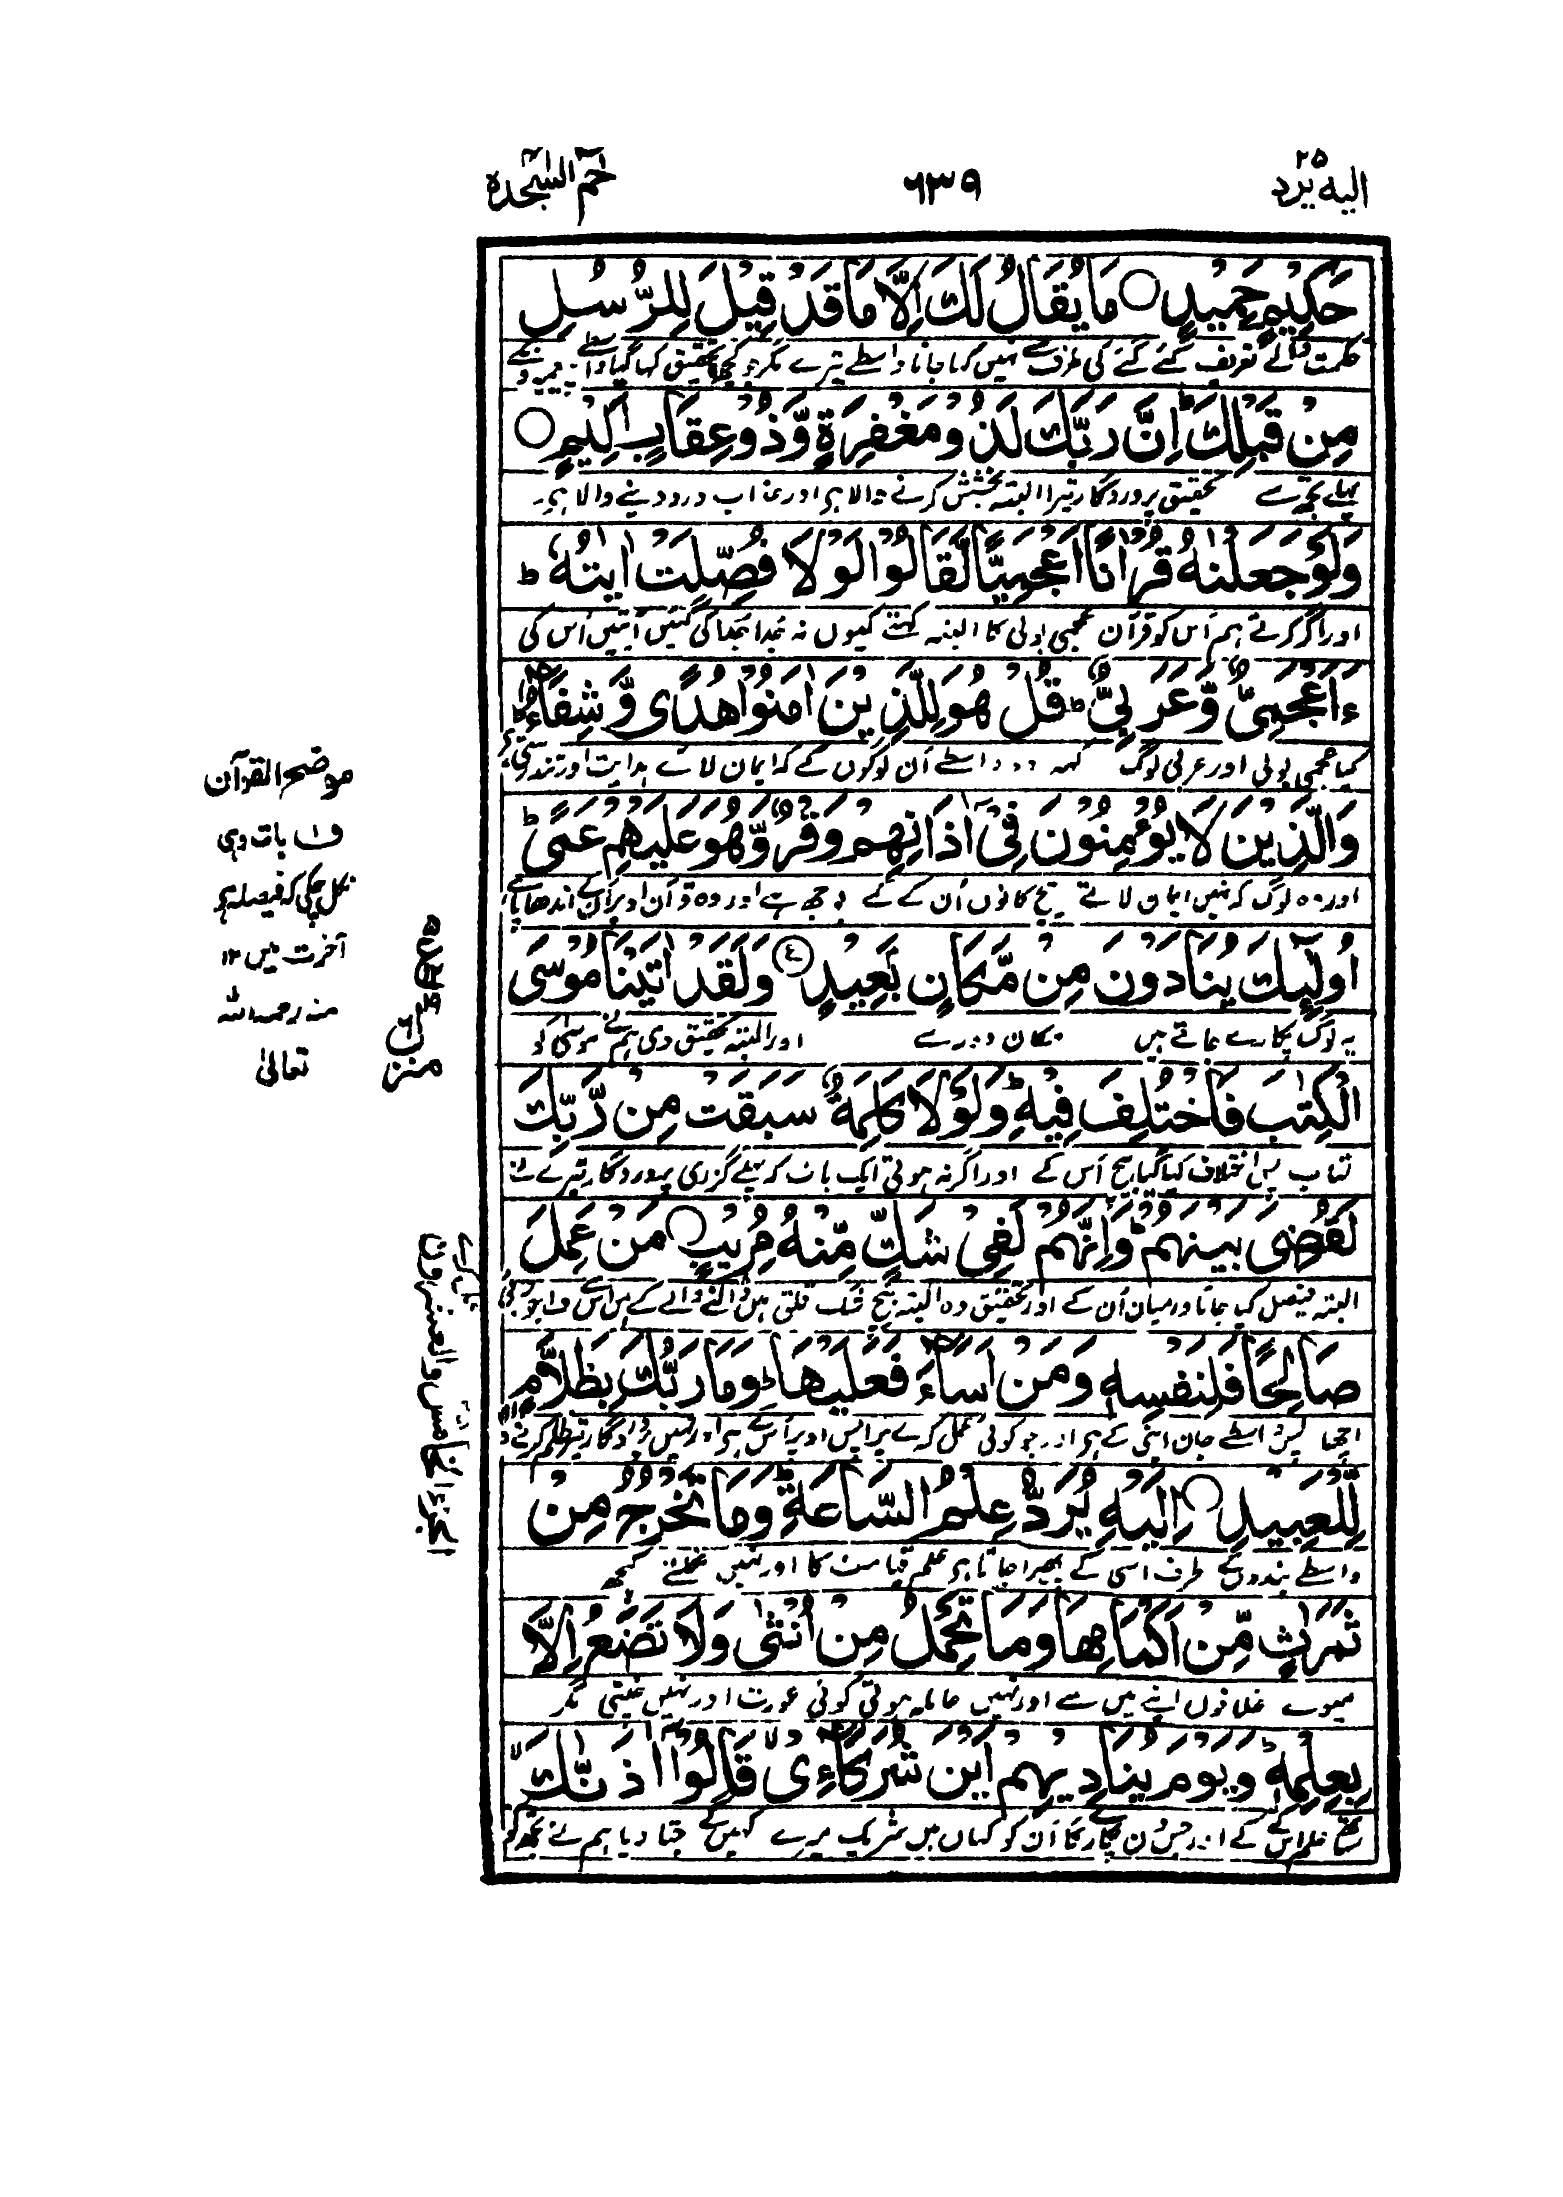 الیه یرد ۲۵
۶۳۹
حٰمٓ السّجدة
حَكِيْمٍ حَمِيْدٍ ○ مَا يُقَالُ لَكَ اِلَّا مَا قَدْ قِيْلَ لِلرُّسُلِ
حکمت والے تعریف کئے گئے کی طرف سے نہیں کہا جاتا واسطے تیرے مگر جو کچھ تحقیق کہا گیا واسطے پیغمبروں کے
مِنْ قَبْلِكَ ؕ اِنَّ رَبَّكَ لَذُوْ مَغْفِرَةٍ وَّذُوْ عِقَابٍ اَلِيْمٍ ○
پہلے تجھ سے تحقیق پروردگار تیرا البتہ بخشش کرنے والا ہے اور عذاب درد دینے والا ہے۔
وَلَوْ جَعَلْنٰهُ قُرْاٰنًا اَعْجَمِيًّا لَّقَالُوْا لَوْلَا فُصِّلَتْ اٰيٰتُهٗ ؕ
اور اگر کرتے ہم اس کو قرآن عجمی بولی کا البتہ کہتے کیوں نہ جدا جدا کی گئیں آیتیں اس کی
ءَاَعْجَمِيٌّ وَّعَرَبِيٌّ ؕ قُلْ هُوَ لِلَّذِيْنَ اٰمَنُوْا هُدًى وَّشِفَآءٌ ؕ
کیا عجمی بولی اور عربی لوگ کہہ وہ واسطے ان لوگوں کے کہ ایمان لائے ہدایت اور تندرستی ہے
وَالَّذِيْنَ لَا يُؤْمِنُوْنَ فِيْٓ اٰذَانِهِمْ وَقْرٌ وَّهُوَ عَلَيْهِمْ عَمًى ؕ
اور وہ لوگ کہ نہیں ایمان لاتے بیچ کانوں ان کے کے بوجھ ہے اور وہ قرآن اوپر ان کے اندھاپا ہے
اُولٰٓئِكَ يُنَادَوْنَ مِنْ مَّكَانٍۢ بَعِيْدٍ ع وَلَقَدْ اٰتَيْنَا مُوْسَى
یہ لوگ پکارے جاتے ہیں مکان دور سے اور البتہ تحقیق دی ہم نے موسیٰ کو
الْكِتٰبَ فَاخْتُلِفَ فِيْهِ ؕ وَلَوْلَا كَلِمَةٌ سَبَقَتْ مِنْ رَّبِّكَ
کتاب پس اختلاف کیا گیا بیچ اس کے اور اگر نہ ہوتی ایک بات کہ پہلے گزری پروردگار تیرے سے
لَقُضِيَ بَيْنَهُمْ ؕ وَاِنَّهُمْ لَفِيْ شَكٍّ مِّنْهُ مُرِيْبٍ ○ مَنْ عَمِلَ
البتہ فیصل کیا جاتا درمیان ان کے اور تحقیق وہ البتہ بیچ شک قلق میں ڈالنے والے کے ہیں اس سے ف۱ جو کوئی
صَالِحًا فَلِنَفْسِهٖ وَمَنْ اَسَآءَ فَعَلَيْهَا ؕ وَمَا رَبُّكَ بِظَلَّامٍ
اچھا پس واسطے جان اپنی کے ہے اور جو کوئی عمل کرے برا پس اوپر اس کے ہے اور نہیں پروردگار تیرا ظلم کرنے والا
لِّلْعَبِيْدِ ○ اِلَيْهِ يُرَدُّ عِلْمُ السَّاعَةِ ؕ وَمَا تَخْرُجُ مِنْ
واسطے بندوں کے طرف اسی کے پھیرا جاتا ہے علم قیامت کا اور نہیں نکلتے کچھ
ثَمَرٰتٍ مِّنْ اَكْمَامِهَا وَمَا تَحْمِلُ مِنْ اُنْثٰى وَلَا تَضَعُ اِلَّا
میوے غلافوں اپنے میں سے اور نہیں حاملہ ہوتی کوئی عورت اور نہیں جنتی مگر
بِعِلْمِهٖ ؕ وَيَوْمَ يُنَادِيْهِمْ اَيْنَ شُرَكَآءِيْ ۙ قَالُوْٓا اٰذَنّٰكَ ۙ
بیچ علم اس کے کے اور جس دن پکارے گا ان کو کہاں ہیں شریک میرے کہیں گے جتا دیا ہم نے تجھ کو
موضح القرآن
ف۱ بات وہی
نکل چکی کہ فیصلہ ہے
آخرت میں ۱۲
منہ رحمہ اللہ
تعالیٰ
منزل ۶
الجزء الخامس والعشرون